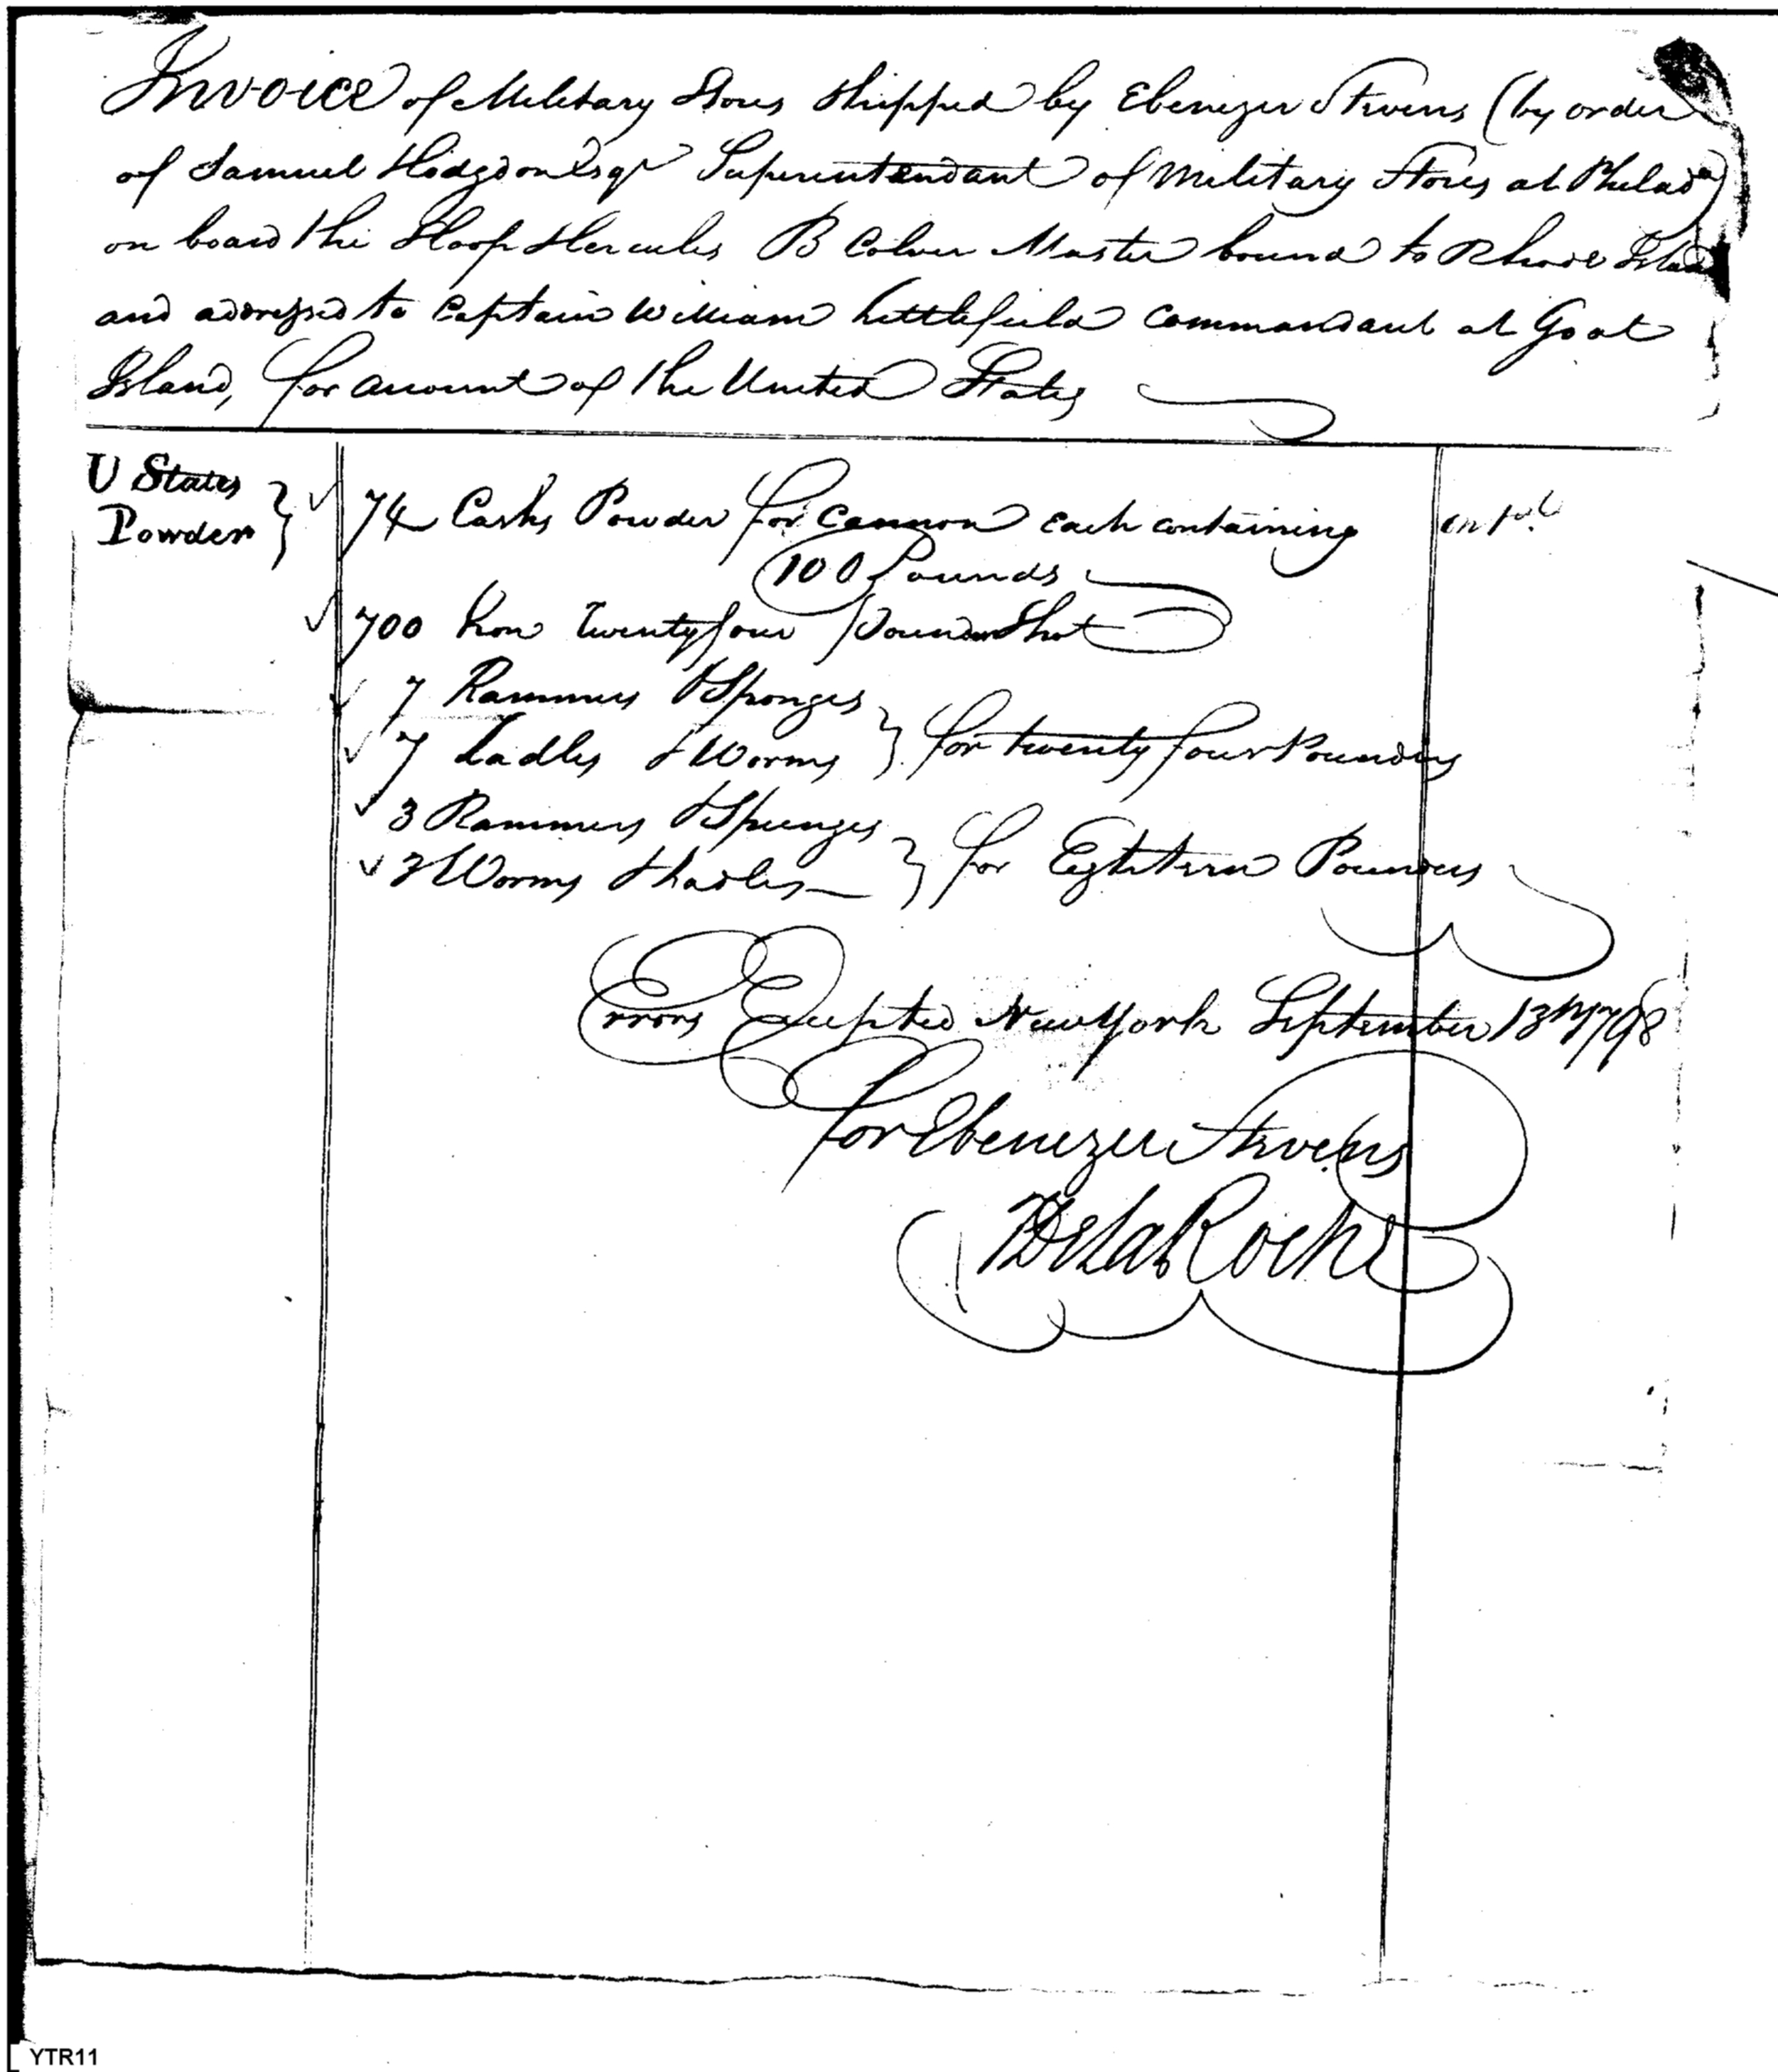 Invoice of Military Stores Shipped by Ebenezer Stevens (by order
of Samuel Hodgdon Esqr Superintendant of Military Stores at Philada)
on board the Sloop Hercules B Colver Master bound to Rhode Island
and addressed to Captain William Littlefield Commandant at Goat
Island, for account of the United States
U States
Powder
74 Casks Powder for Cannon each containing
100 Pounds
700 Iron Twenty four Pounder Shot
7 Rammers & Sponges
7 Ladles & Worms } for twenty four Pounders
3 Rammers & Spunges
3 Worms & Ladles } for Eighteen Pounders
Errors Excepted New York September 13th 1798
for Ebenezer Stevens
DelaRoche
YTR11